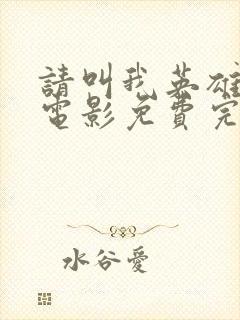 請叫我英雄
電影免費完
水谷愛